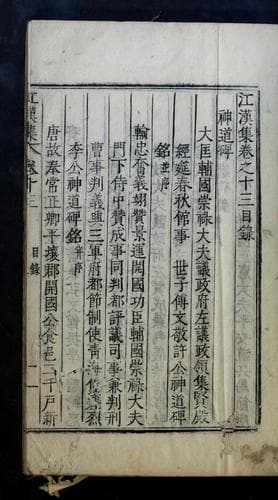 江漢集卷之十三目錄
神道碑
大匡輔國崇祿大夫議政府左議政領集賢殿
經筵春秋館事 世子傅文敬許公神道碑
銘並序
輸忠奮義翊贊景運開國功臣輔國崇祿大夫
門下侍中贊成事同判都評議司事兼判刑
曹事判義興三軍府都節制使青海伯襄烈
李公神道碑銘並序
唐故奉常正卿平壤郡開國公食邑二千戶新
江漢集 卷十三 目錄 一